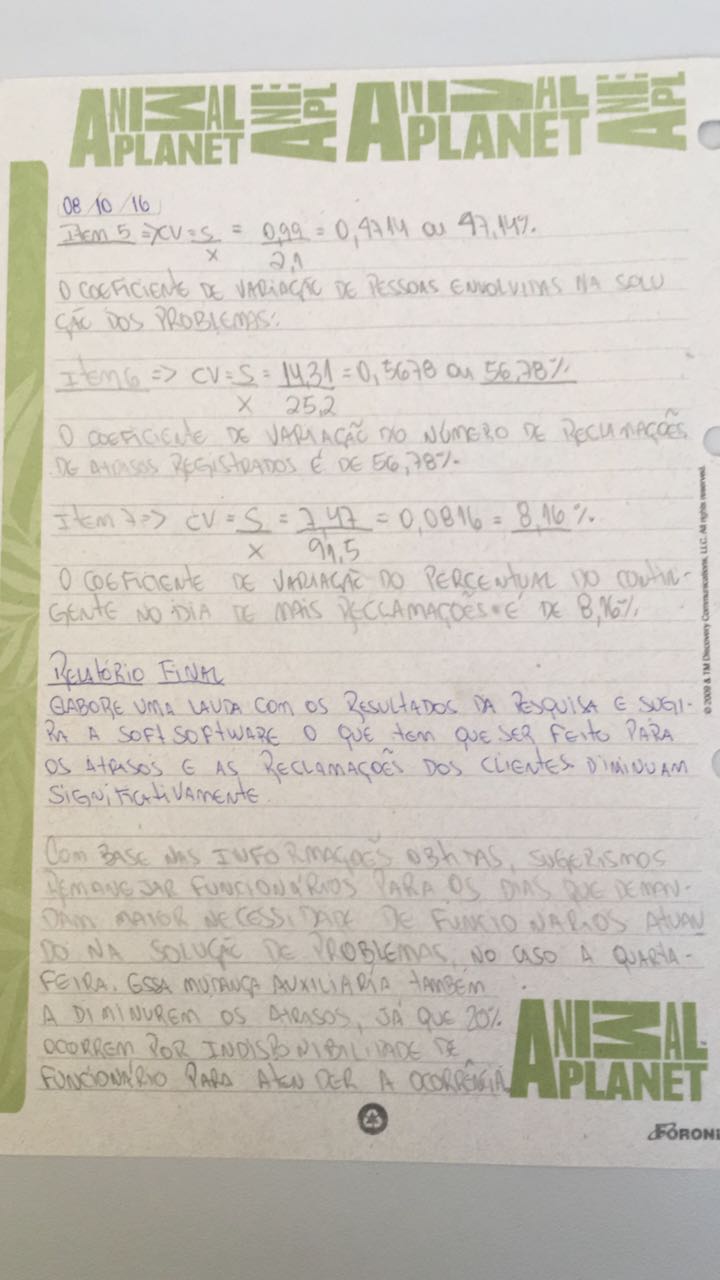 ANIMAL PLANET ANI APL ANIMAL PLANET ANI APL
08/10/16
Item 5 => CV = S = 0,99 = 0,4714 ou 47,14%.
X 2,1
O COEFICIENTE DE VARIAÇÃO DE PESSOAS ENVOLVIDAS NA SOLU
ÇÃO DOS PROBLEMAS:
Item 6 => CV = S = 14,31 = 0,5678 ou 56,78%
X 25,2
O COEFICIENTE DE VARIAÇÃO DO NÚMERO DE RECLAMAÇÕES
DE ATRASOS REGISTRADOS É DE 56,78%.
Item 7 => CV = S = 7,47 = 0,0816 = 8,16%.
X 91,5
O COEFICIENTE DE VARIAÇÃO DO PERCENTUAL DO CONTIN-
GENTE NO DIA DE MAIS RECLAMAÇÕES É DE 8,16%
© 2009 & TM Discovery Communications, LLC. All rights reserved.
RELATÓRIO FINAL
ELABORE UMA LAUDA COM OS RESULTADOS DA PESQUISA E SUGI-
RA A SOFTSOFTWARE O QUE TEM QUE SER FEITO PARA
OS ATRASOS E AS RECLAMAÇÕES DOS CLIENTES DIMINUAM
SIGNIFICATIVAMENTE.
COM BASE NAS INFORMAÇÕES OBTIDAS, SUGERISMOS
REMANEJAR FUNCIONÁRIOS PARA OS DIAS QUE DEMAN-
DAM MAIOR NECESSIDADE DE FUNCIONÁRIOS ATUAN
DO NA SOLUÇÃO DE PROBLEMAS, NO CASO A QUARTA-
FEIRA. ESSA MUTANÇA AUXILIARIA TAMBÉM
A DIMINUREM OS ATRASOS, JÁ QUE 20%
OCORREM POR INDISPONIBILIDADE DE
FUNCIONÁRIO PARA ATENDER A OCORRÊNCIA
ANIMAL PLANET
FORONI